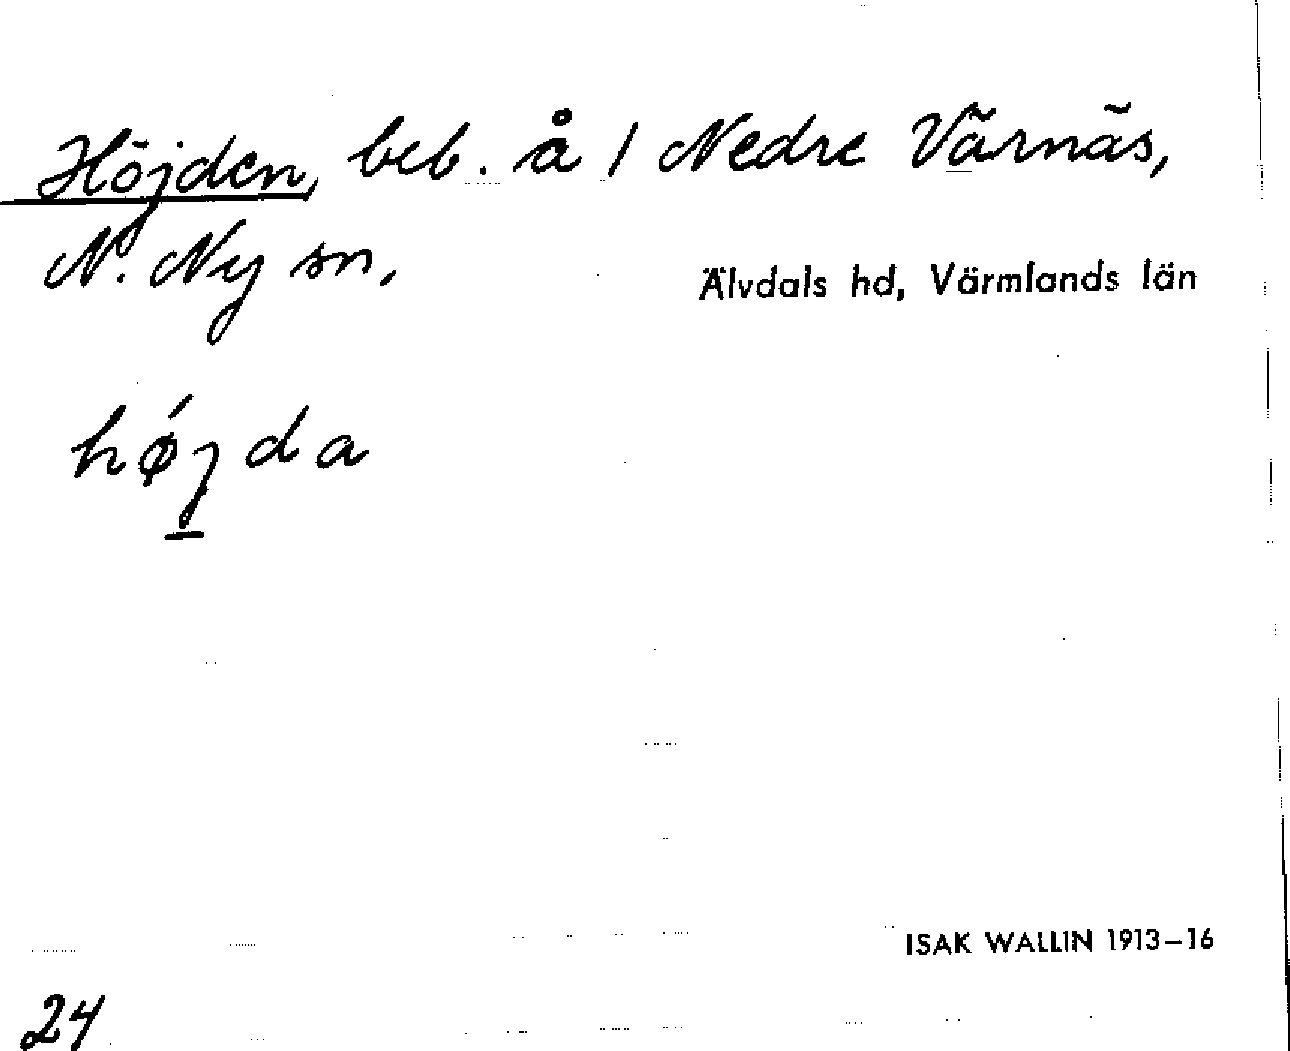 Höjden, beb. å 1 Nedre Värnäs,
N. Ny sn.
Älvdals hd, Värmlands län
hǿjda
ISAK WALLIN 1913–16
24